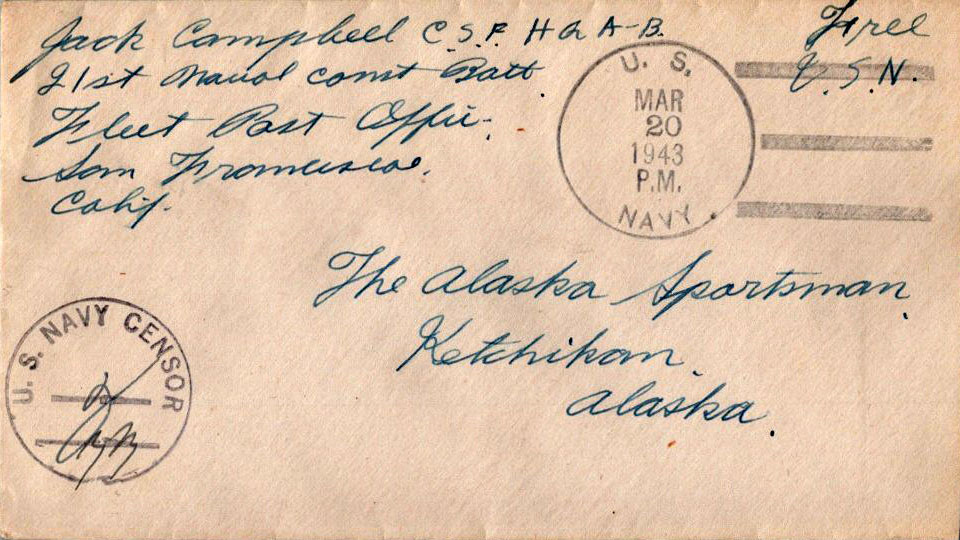 Jack Campbell C.S.F. H & A-B.
21st Naval Const Batt.
Fleet Post Offic.
San Francisco.
Calif.
Free
U.S.N.
U. S.
MAR
20
1943
P.M.
NAVY
The Alaska Sportsman,
Ketchikan,
Alaska.
U. S. NAVY CENSOR